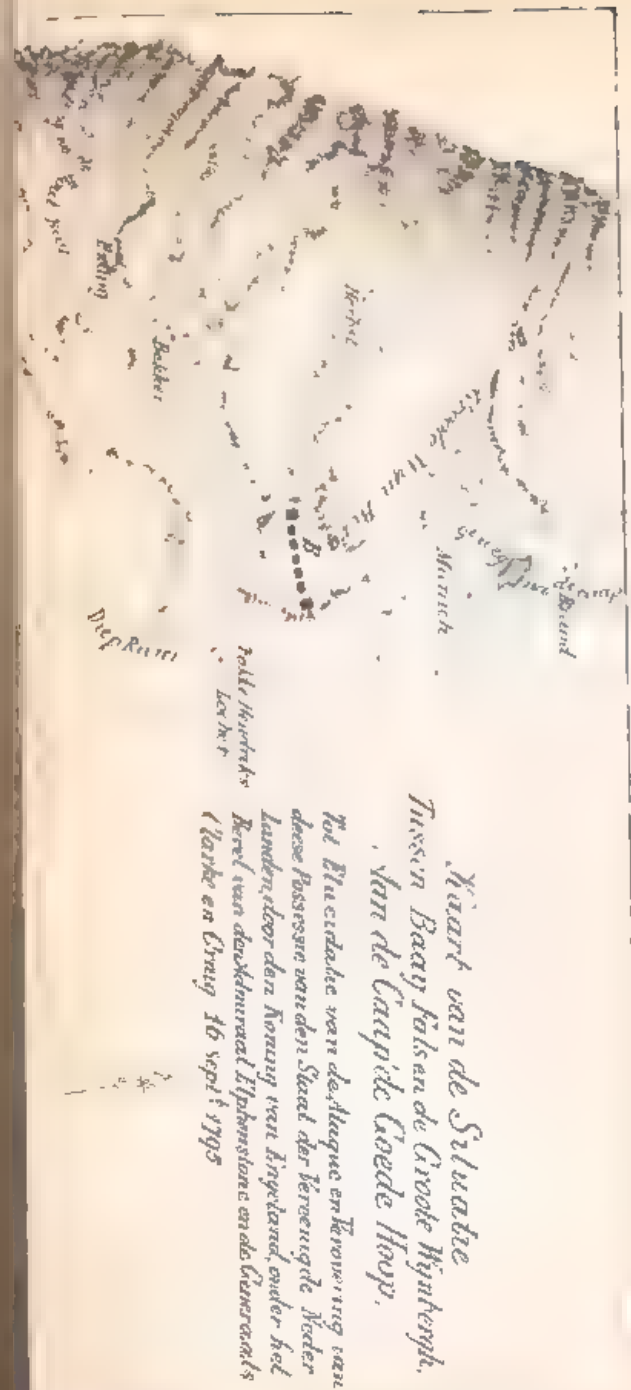 Kaart van de Situatie
Tussen Baay fals en de Groote Wynbergh,
Van de Caap de Goede Hoop,
Tot Elucidatie van de Attaque en Verovering van
deese Possessie van den Staat der Vereenigde Neder
Landen, door den Koning van Engeland, onder het
Bevel van den Admiraal Elphinstone en de Generaals
Clarke en Craig 16 sept.r 1795
Munnik
Brand
B
Bakker
Diep Rivier